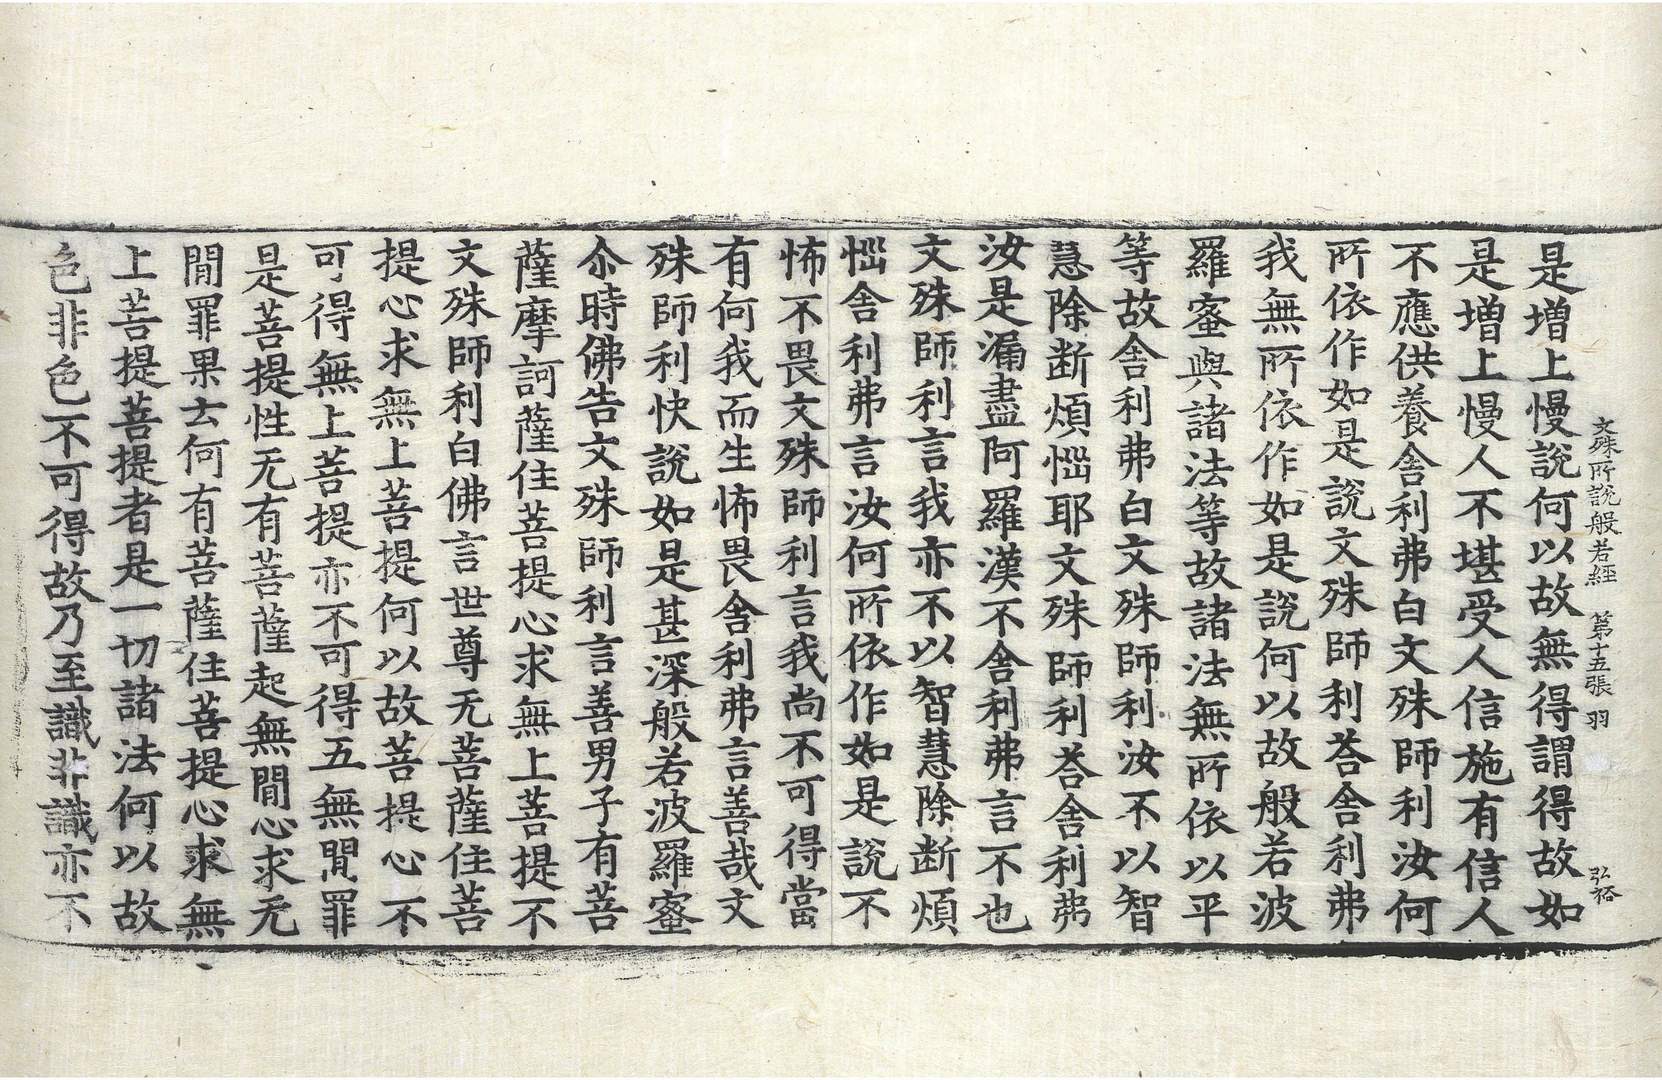 文殊所說般若經　第十五張　羽　弘裕
是增上慢說何以故無得謂得故如
是增上慢人不堪受人信施有信人
不應供養舍利弗白文殊師利汝何
所依作如是說文殊師利荅舍利弗
我無所依作如是說何以故般若波
羅蜜與諸法等故諸法無所依以平
等故舍利弗白文殊師利汝不以智
慧除断煩惱耶文殊師利荅舍利弗
汝是漏盡阿羅漢不舍利弗言不也
文殊師利言我亦不以智慧除断煩
惱舍利弗言汝何所依作如是說不
怖不畏文殊師利言我尚不可得當
有何我而生怖畏舍利弗言善哉文
殊師利快說如是甚深般若波羅蜜
尒時佛告文殊師利言善男子有菩
薩摩訶薩住菩提心求無上菩提不
文殊師利白佛言世尊无菩薩住菩
提心求無上菩提何以故菩提心不
可得無上菩提亦不可得五無閒罪
是菩提性无有菩薩起無閒心求无
閒罪果云何有菩薩住菩提心求無
上菩提菩提者是一切諸法何以故
色非色不可得故乃至識非識亦不